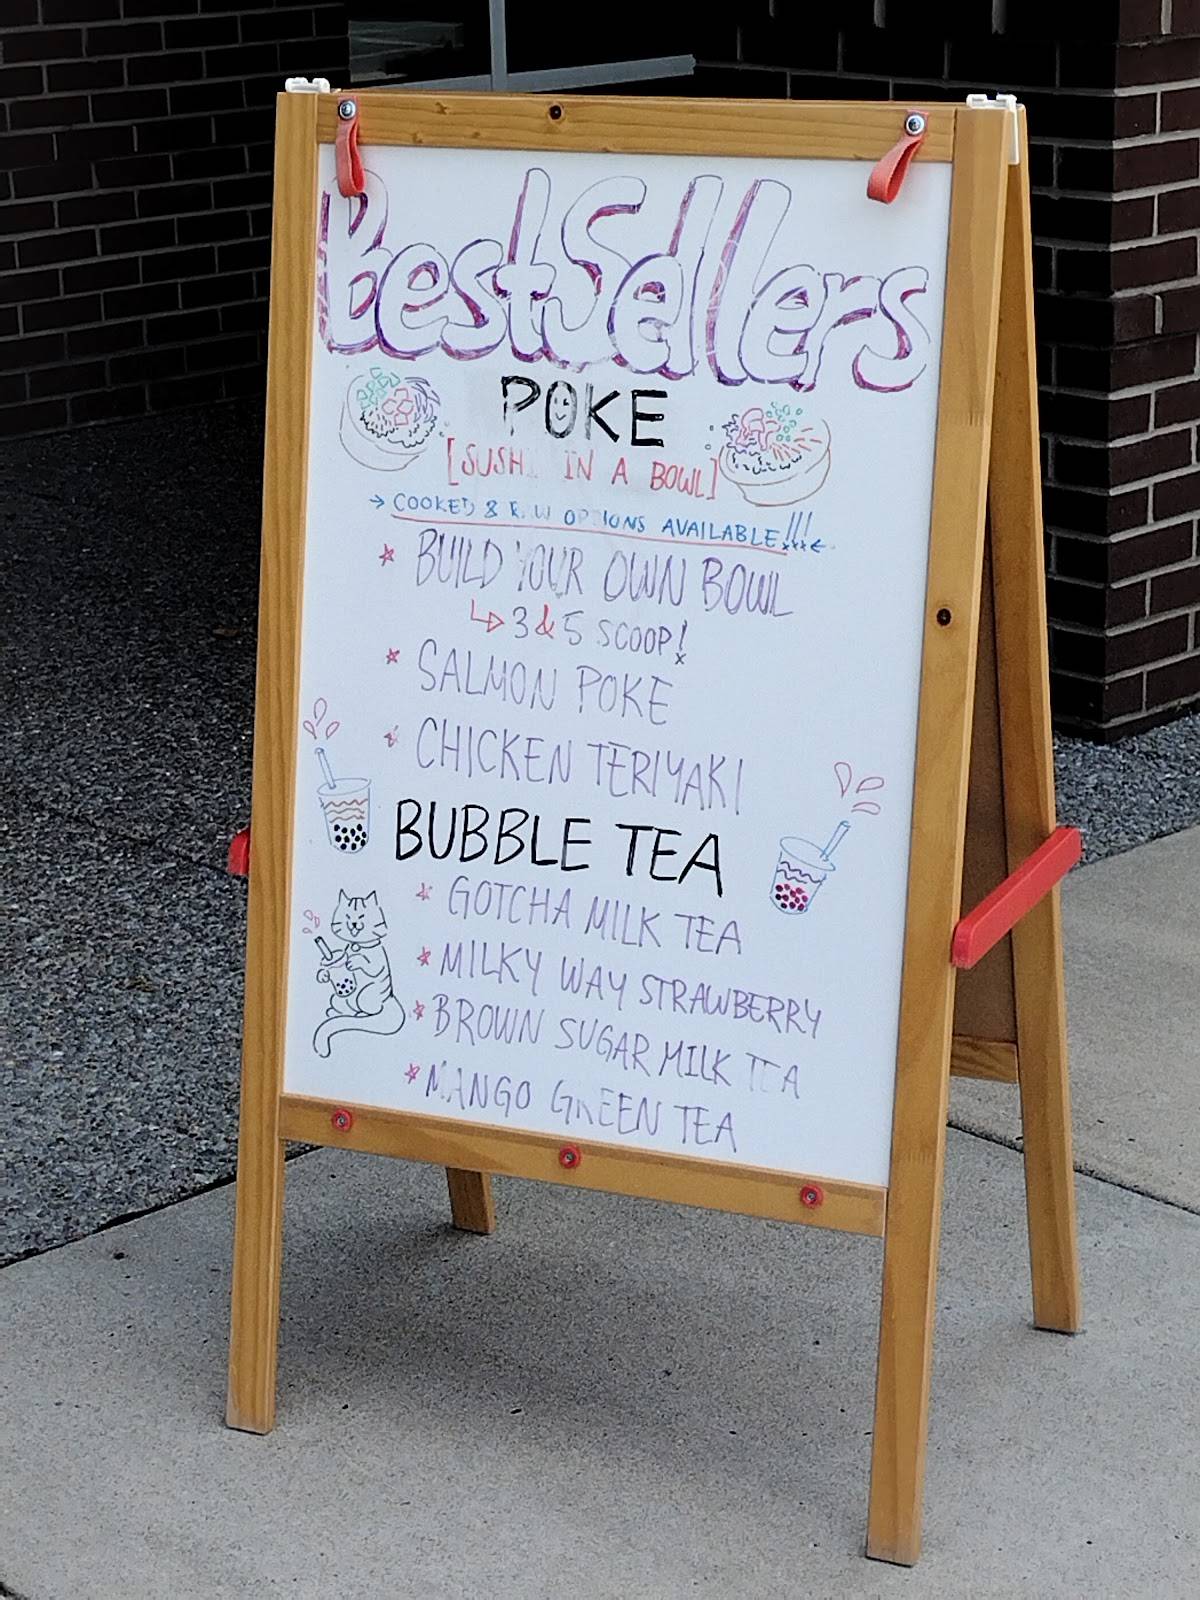 BestSellers
POKE
[SUSHI IN A BOWL]
→ COOKED & RAW OPTIONS AVAILABLE!!! ←
* BUILD YOUR OWN BOWL
↳ 3 & 5 SCOOP!
* SALMON POKE
* CHICKEN TERIYAKI
BUBBLE TEA
* GOTCHA MILK TEA
* MILKY WAY STRAWBERRY
* BROWN SUGAR MILK TEA
* MANGO GREEN TEA